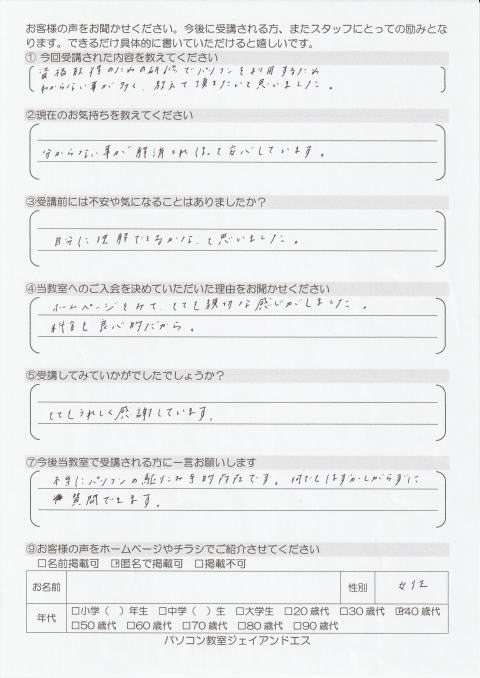 お客様の声をお聞かせください。今後に受講される方、またスタッフにとっての励みとな
ります。できるだけ具体的に書いていただけると嬉しいです。
① 今回受講された内容を教えてください
資格取得のための研修でパソコンを利用するため
わからない事が多く、教えて頂きたいと思いました。
②現在のお気持ちを教えてください
分からない事が解消されほっと安心しています。
③受講前には不安や気になることはありましたか？
自分に理解できるかな、と思いました。
④当教室へのご入会を決めていただいた理由をお聞かせください
ホームページをみて、とても親切な感じがしました。
料金も良心的だから。
⑤受講してみていかがでしたでしょうか？
とてもうれしく感謝しています。
⑦今後当教室で受講される方に一言お願いします
本当にパソコンの駆けこみ寺的存在です。何でもはずかしがらずに
質問できます。
⑨お客様の声をホームページやチラシでご紹介させてください
□名前掲載可 ☑匿名で掲載可 □掲載不可
お名前 性別 女性
年代 □小学（ ）年生 □中学（ ）生 □大学生 □20歳代 □30歳代 ☑40歳代
□50歳代 □60歳代 □70歳代 □80歳代 □90歳代
パソコン教室ジェイアンドエス